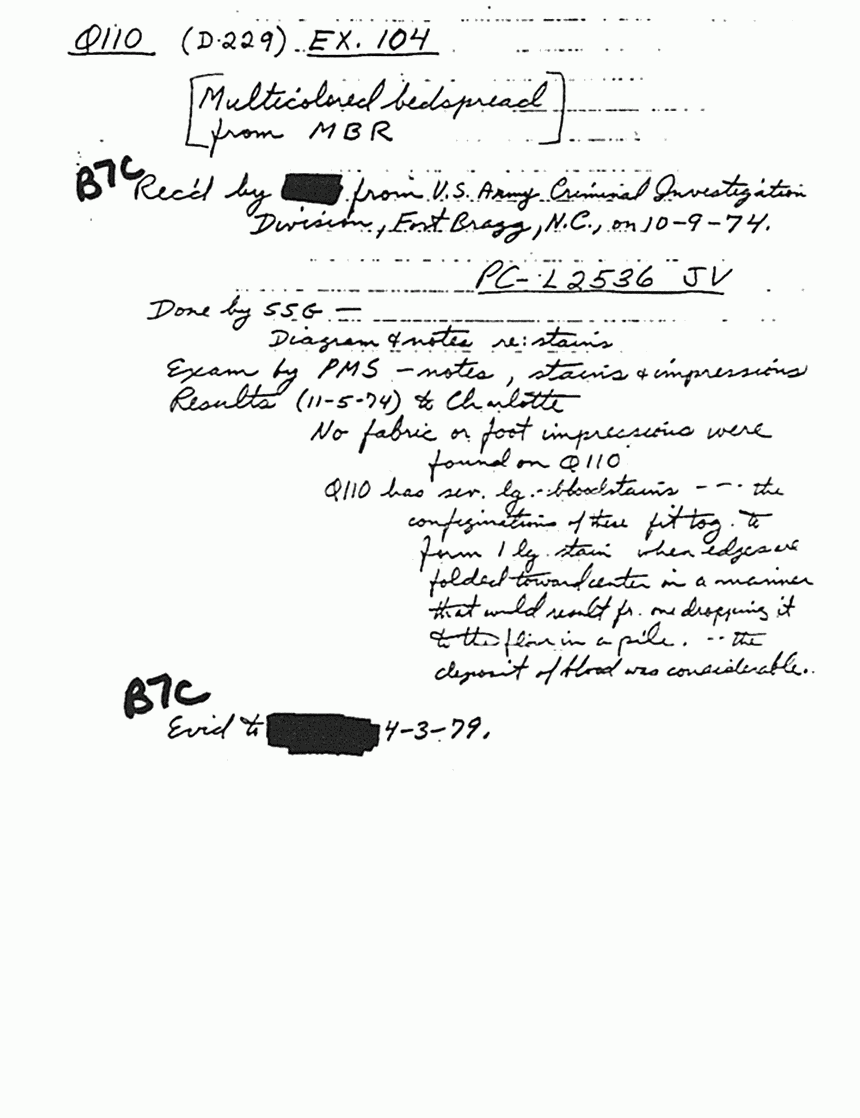 Q110 (D-229) EX. 104
[Multicolored bedspread
from MBR]
B7C
Rec'd by from U.S. Army Criminal Investigation
Division, Fort Bragg, N.C., on 10-9-74.
PC-L2536 JV
Done by SSG —
Diagram & notes re: stains
Exam by PMS - notes, stains & impressions
Results (11-5-74) to Charlotte
No fabric or foot impressions were
found on Q110
Q110 has sev. lg. bloodstains --- the
configurations of these fit tog. to
form 1 lg. stain when edges are
folded toward center in a manner
that would result fr. one dropping it
to the floor in a pile. -- the
deposit of blood was considerable..
B7C
Evid to 4-3-79.